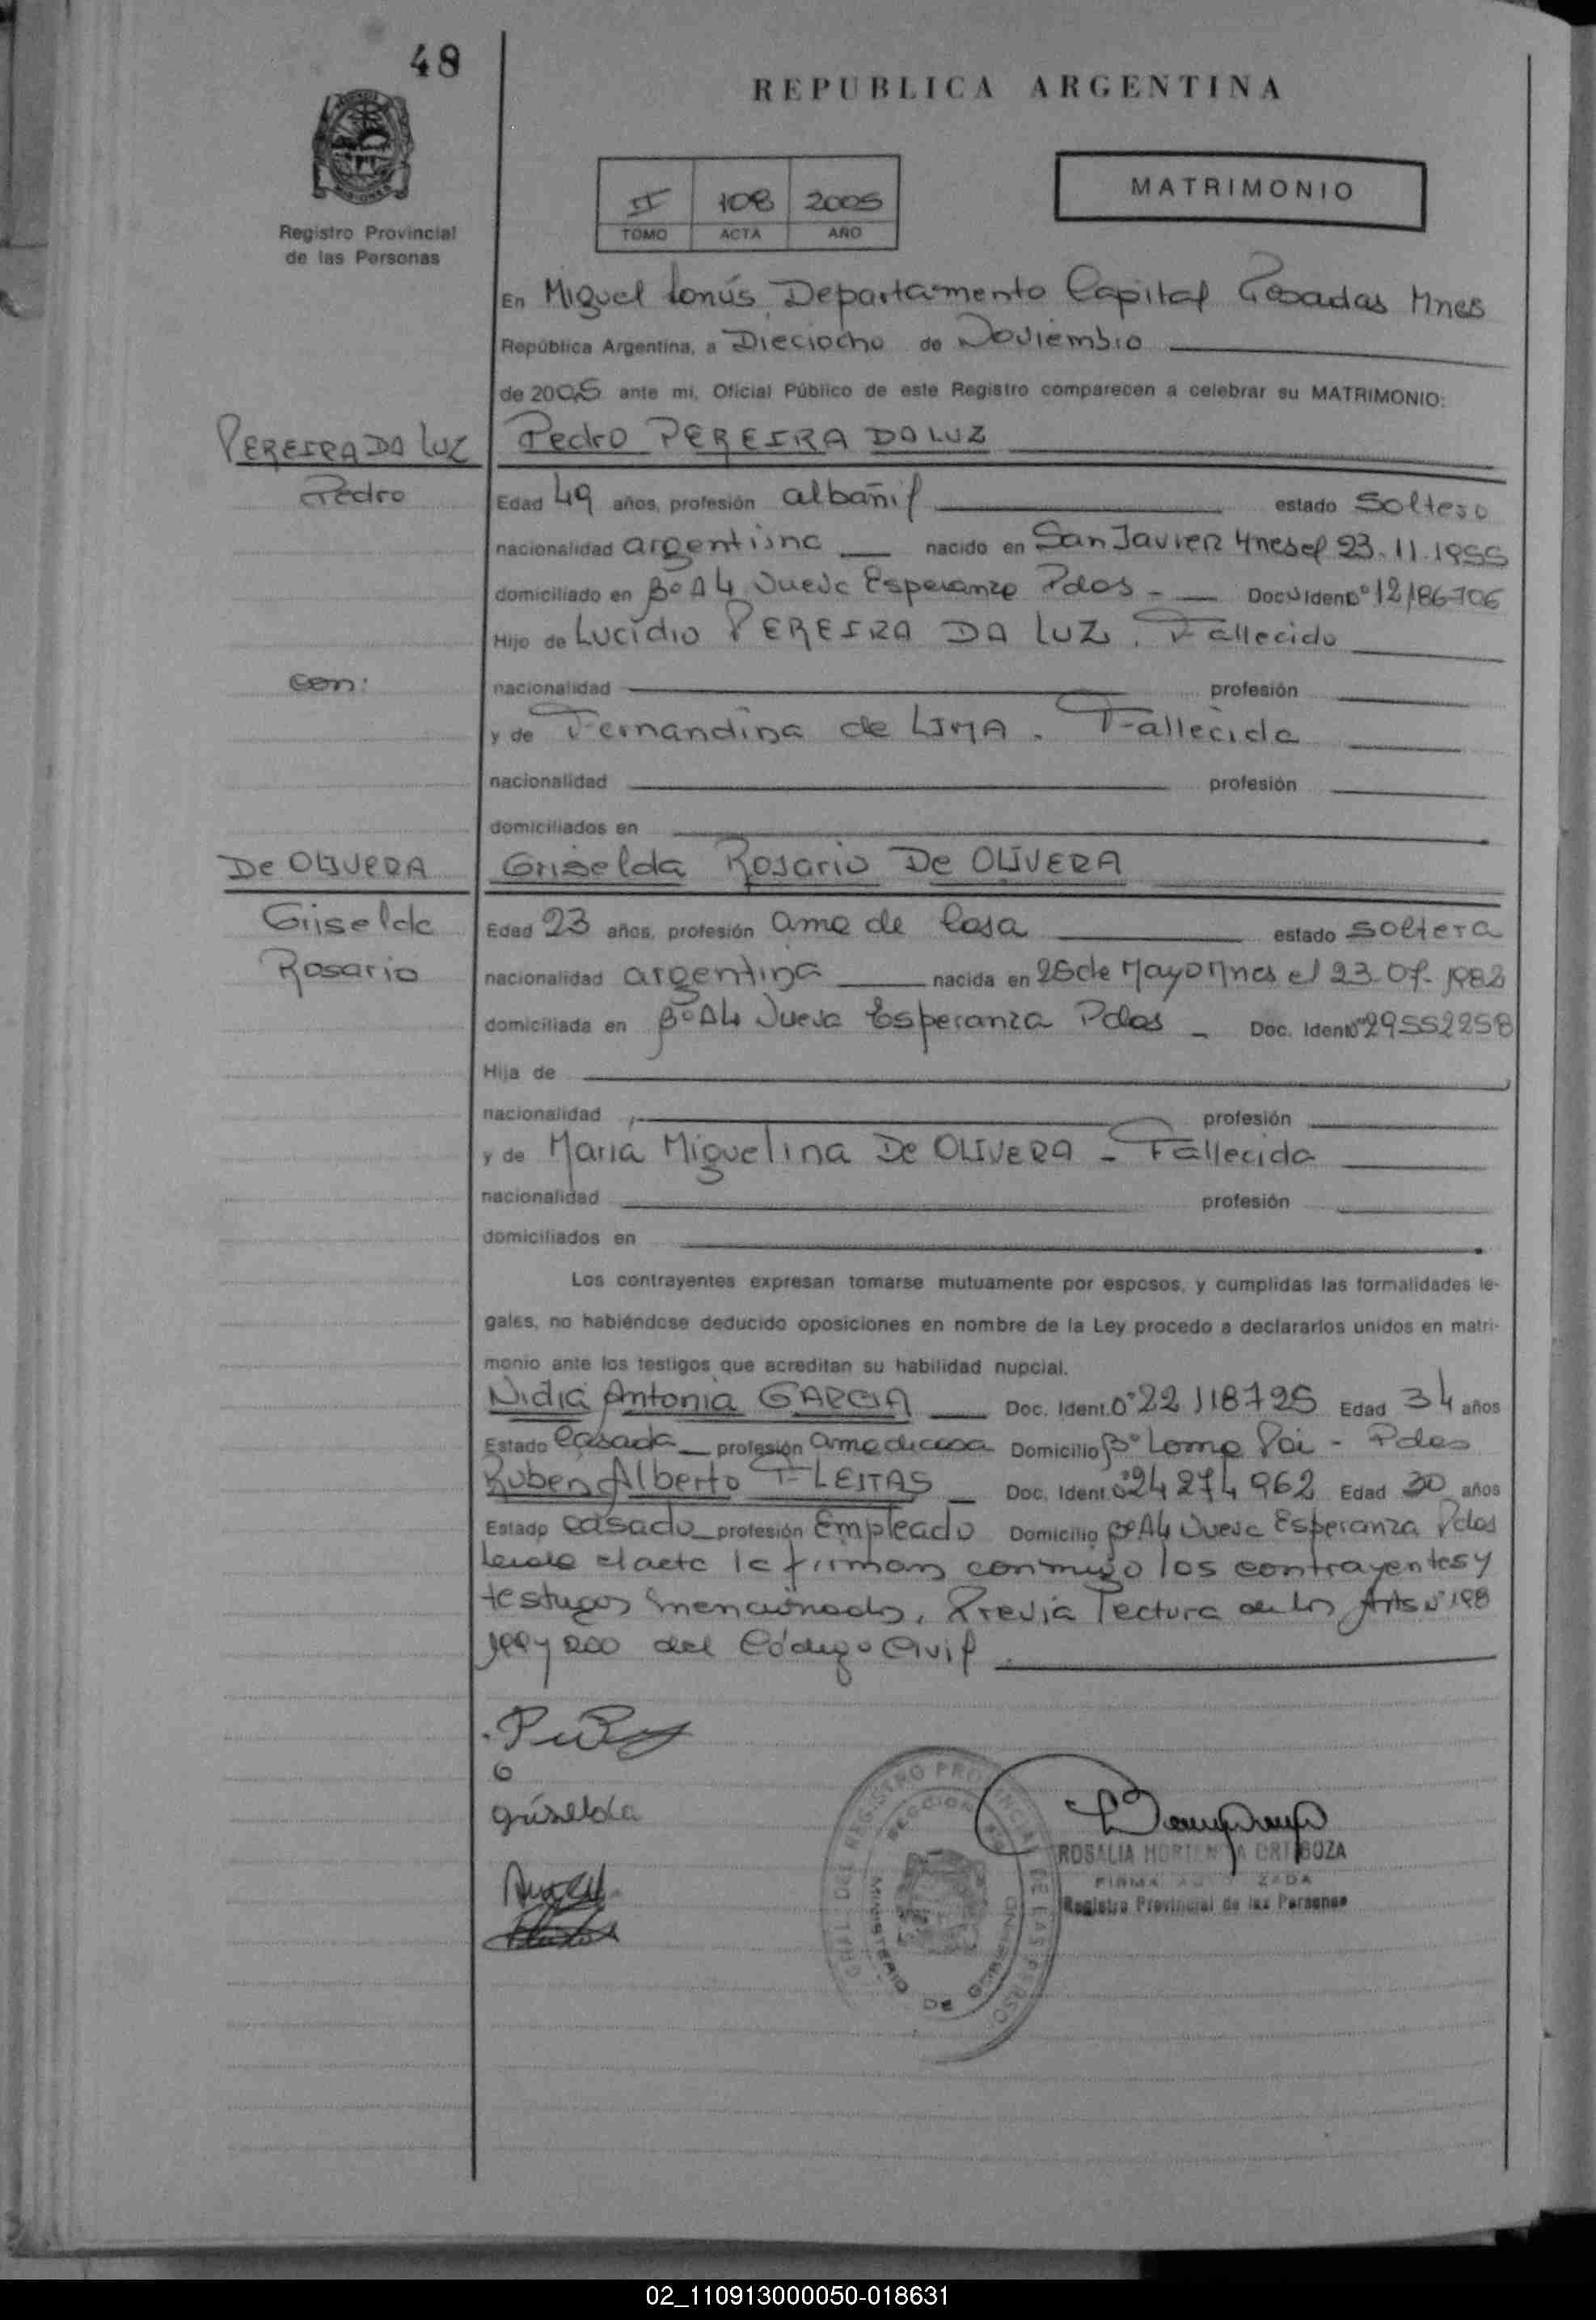 48
REPUBLICA ARGENTINA
Registro Provincial
de las Personas
II 108 2005
TOMO ACTA AÑO
MATRIMONIO
En Miguel Lanús, Departamento Capital Posadas Mnes
República Argentina, a Dieciocho de Noviembre
de 2005 ante mi, Oficial Público de este Registro comparecen a celebrar su MATRIMONIO:
PEREIRA DA LUZ Pedro PEREIRA DA LUZ
Pedro
Edad 49 años, profesión albañil estado Soltero
nacionalidad argentino nacido en San Javier Mnes el 23.11.1955
domiciliado en B° A4 Nueva Esperanza Pdas - Doc. Ident. N° 12186706
Hijo de Lucídio PEREIRA DA LUZ. Fallecido
con:
nacionalidad profesión
y de Fernandina de LIMA. Fallecida
nacionalidad profesión
domiciliados en
De OLIVERA Griselda Rosario De OLIVERA
Griselda
Rosario
Edad 23 años, profesión ama de Casa estado soltera
nacionalidad argentina nacida en 25 de Mayo Mnes el 23-07-1982
domiciliada en B° A4 Nueva Esperanza Pdas - Doc. Ident. N° 29552258
Hija de
nacionalidad profesión
y de Maria Miguelina De OLIVERA - Fallecida
nacionalidad profesión
domiciliados en
Los contrayentes expresan tomarse mutuamente por esposos, y cumplidas las formalidades le-
gales, no habiéndose deducido oposiciones en nombre de la Ley procedo a declararlos unidos en matri-
monio ante los testigos que acreditan su habilidad nupcial.
Nidia Antonia GARCIA Doc. Ident. N° 22118725 Edad 34 años
Estado Casada profesión ama de casa Domicilio B° Loma Poi - Pdas
Ruben Alberto FLEITAS Doc. Ident. N° 24274962 Edad 30 años
Estado casado profesión Empleado Domicilio B° A4 Nueva Esperanza Pdas
Leida el acta la firman conmigo los contrayentes y
testigos mencionados, Previa lectura de los Arts N° 198
199 y 200 del Código Civil
Griselda
GRAL. DEL REGISTRO PROVINCIAL DE LAS PERSO
MINISTERIO DE GOBIERNO
ROSALIA HORTENSIA ORTIGOZA
FIRMA AUTORIZADA
Registro Provincial de las Personas
02_110913000050-018631